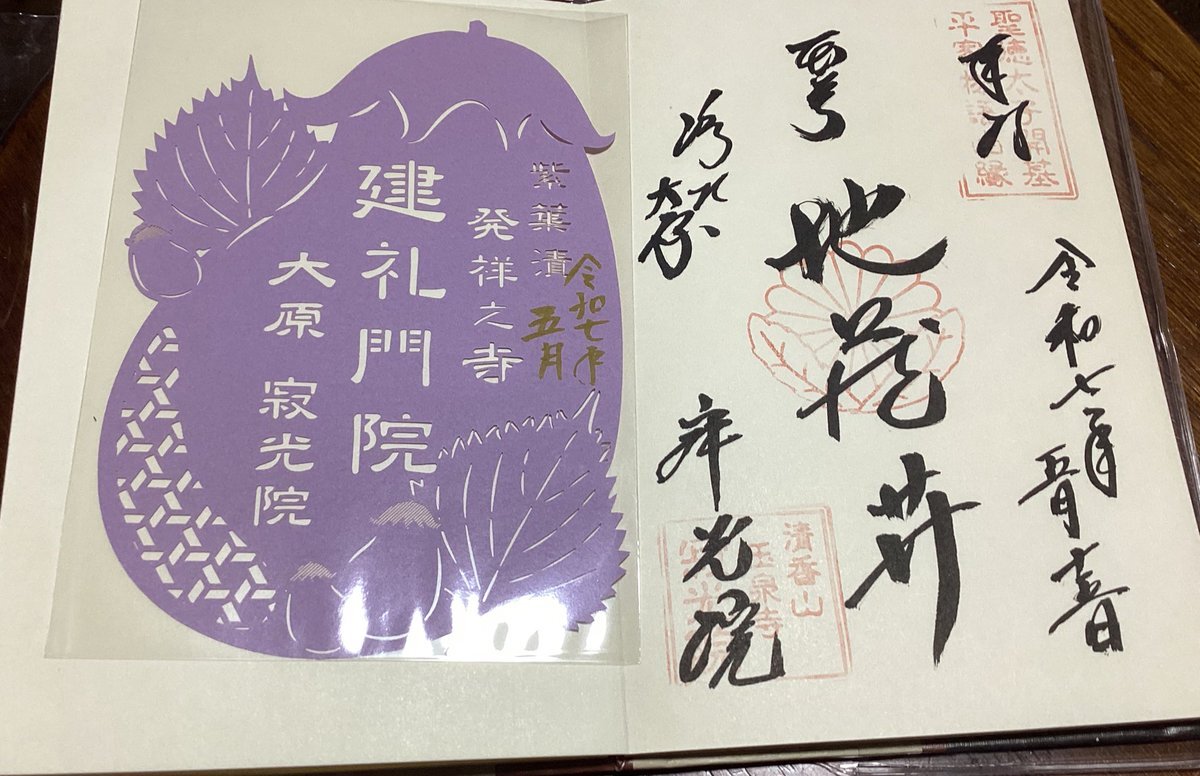 聖徳太子開基
平家物語由縁
奉拝
令和七年五月
地蔵𦬇
大原
寂光院
清香山
玉泉寺
寂光院
紫葉漬
発祥之寺
令和七年
五月
建礼門院
大原 寂光院